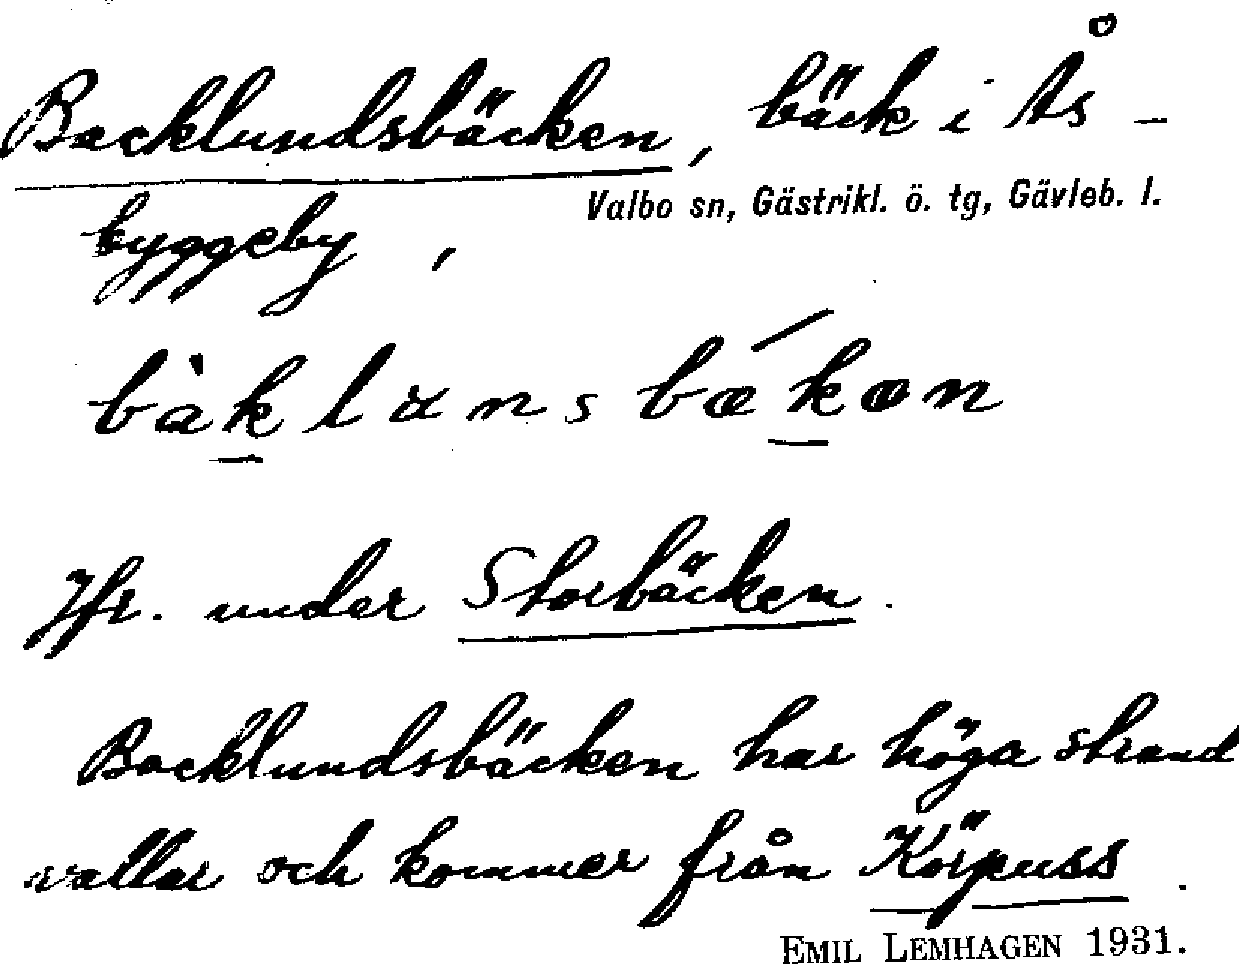 Backlundsbäcken, bäck i Ås-
Valbo sn, Gästrikl. ö. tg, Gävleb. l.
byggeby,
bàklunsbǽkæn
Jfr. under Storbäcken.
Backlundsbäcken har höga strand
vallar och kommer från Körpuss.
EMIL LEMHAGEN 1931.